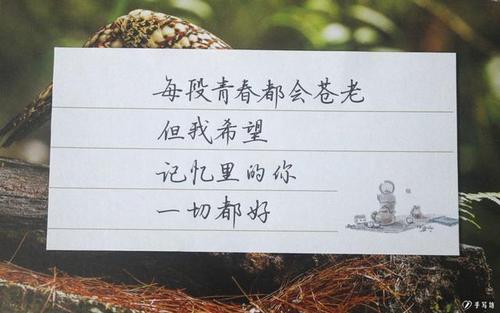 每段青春都会苍老
但我希望
记忆里的你
一切都好
手写馆